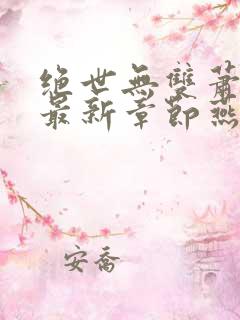 绝世无双萧
最新章节燕
安乔